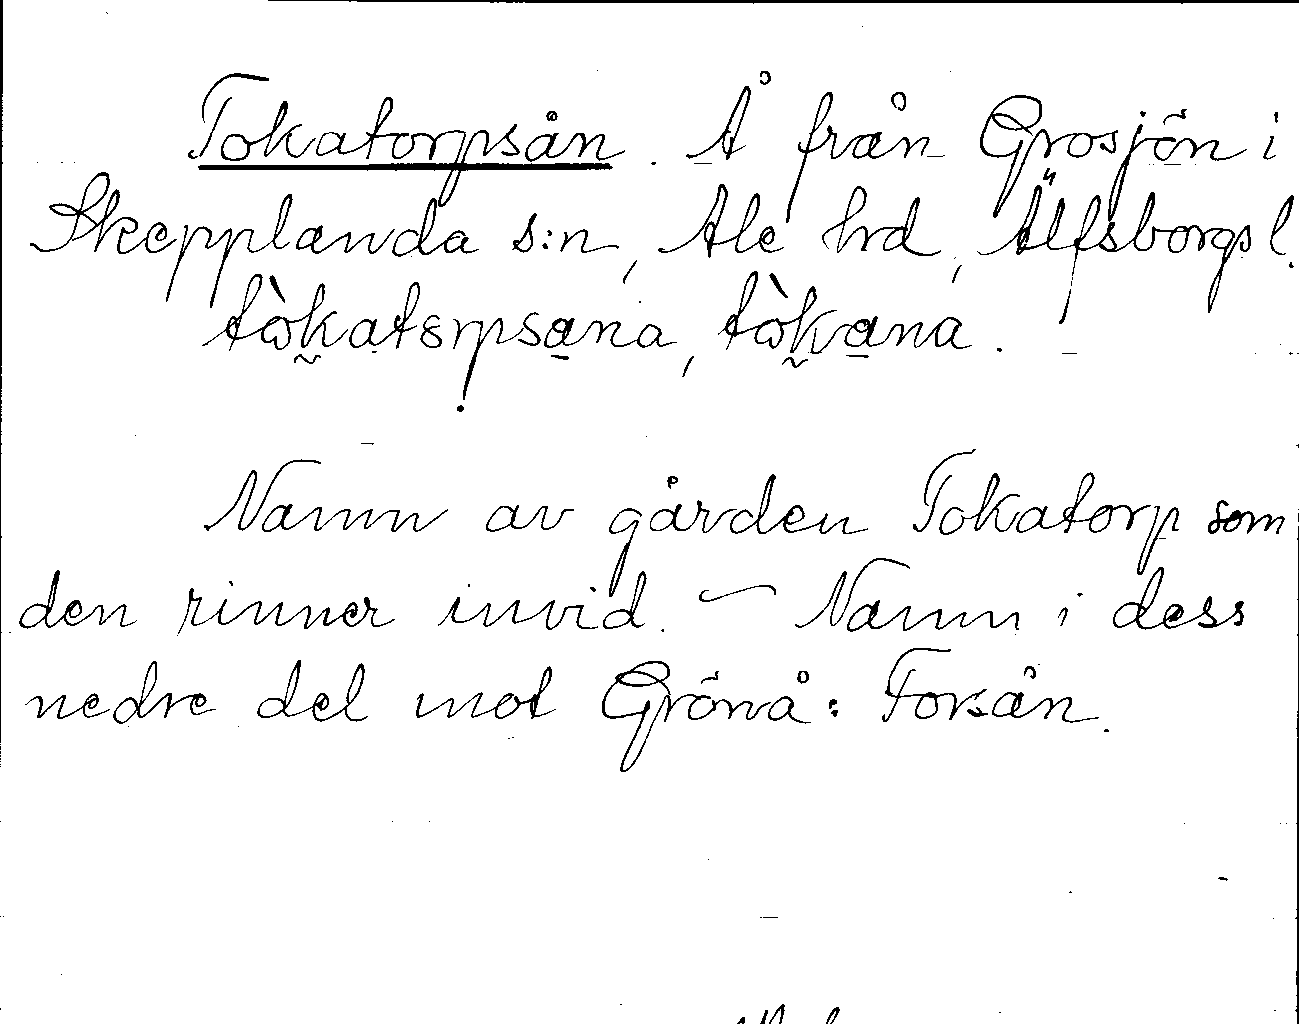 Tokatorpsån. Å från Grosjön i
Skepplanda s:n, Ale hrd, Älfsborgs l.
tὼkatɞrpsana, tὼkana.
Namn av gården Tokatorp som
den rinner invid. – Namn i dess
nedre del mot Grönå: Forsån.